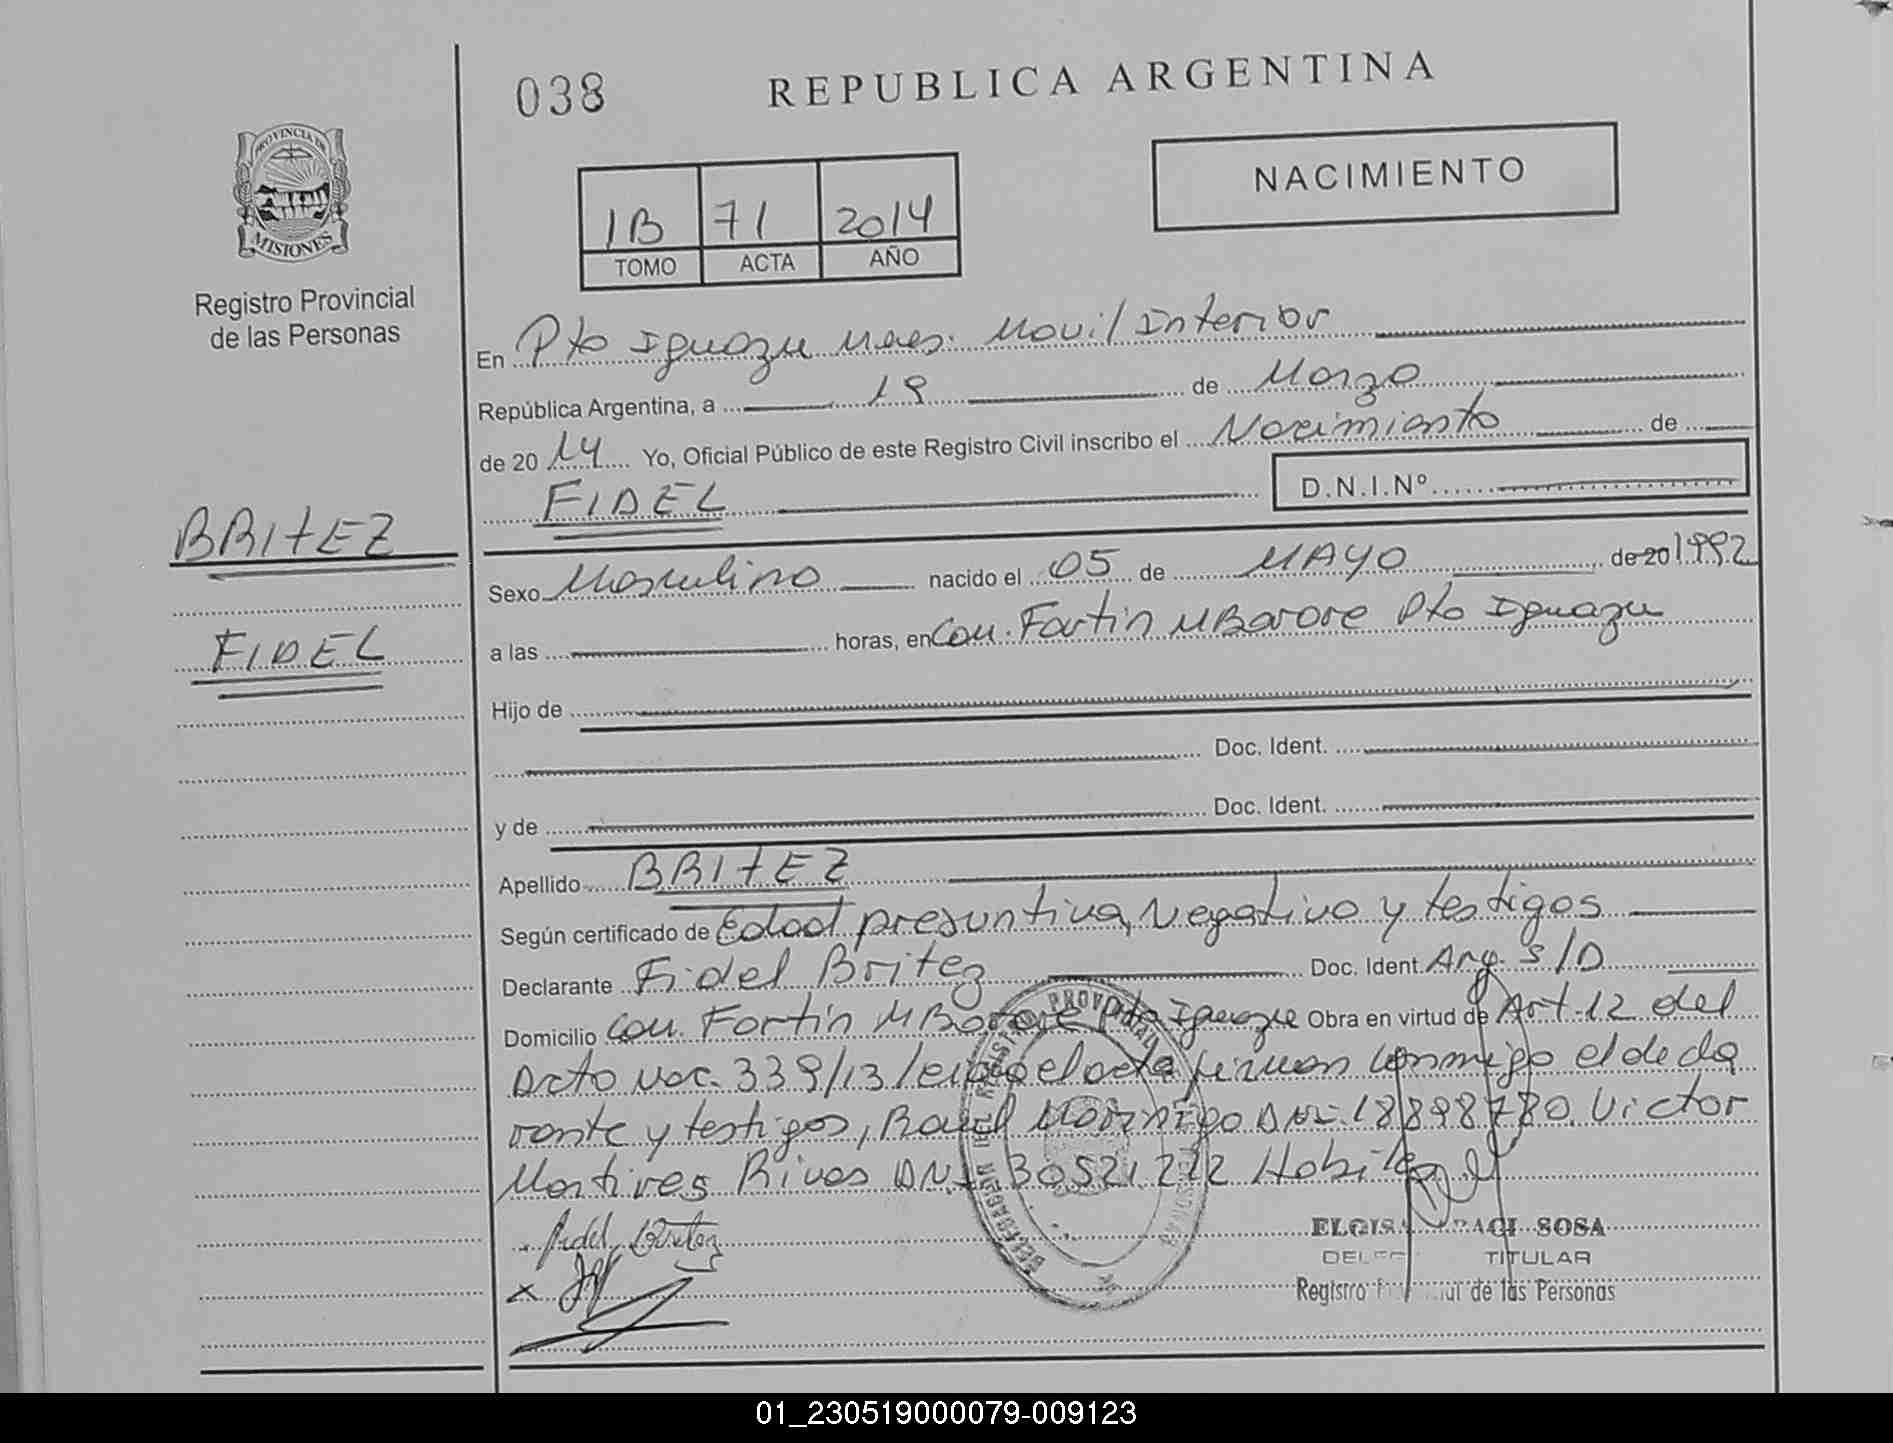 038
REPUBLICA ARGENTINA
PROVINCIA DE
MISIONES
Registro Provincial
de las Personas
NACIMIENTO
1B 71 2014
TOMO ACTA AÑO
En Pto Iguazu Mnes. Movil Interior
República Argentina, a 19 de Marzo
de 2014 Yo, Oficial Público de este Registro Civil inscribo el Nacimiento de
FIDEL D.N.I.Nº
BRITEZ
FIDEL
Sexo Masculino nacido el 05 de MAYO de 20 1992
a las horas, en Com. Fortin MBorore Pto Iguazu
Hijo de
Doc. Ident.
y de Doc. Ident.
Apellido BRITEZ
Según certificado de Edad presuntiva, Negativo y testigos
Declarante Fidel Britez Doc. Ident. Arg. S/D
Domicilio Com. Fortin MBorore Pto Iguazu Obra en virtud de Art. 12 del
Dcto Nac. 339/13 el acta firman conmigo el decla
rante y testigos, Raul Morinigo DNI. 18898780. Victor
Martires Rivas DNI 30521272
Fidel Britez
x
ELGISA SOSA
TITULAR
Registro de las Personas
01_230519000079-009123